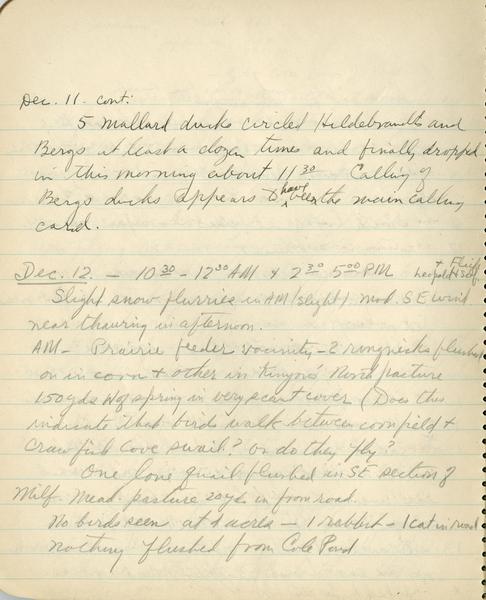 Dec. 11. cont:
5 mallard ducks circled Hildebrandts and
Bergs at least a dozen times and finally dropped
in this morning about 11 30 Calling of
Bergs ducks appears to have been the main calling
card.
Dec. 12. - 10 30 - 12 30 AM & 2 30 5 00 PM
Leopold + self
Slight snow flurries in AM (slight) mod. SE wind
near thawing in afternoon.
AM - Prairie feeder vicinity - 2 ringnecks flushed
on in corn + other in Kinyon's North pasture
150 yds W of spring in very scant cover (Does this
indicate that birds walk between cornfield +
Crawfish Cove swail? or do they fly?
One lone quail flushed in SE section of
Milf. Mead. pasture 20 yds in from road.
No birds seen at 4 acres - 1 rabbit - 1 cat in road
Nothing flushed from Cole Pond